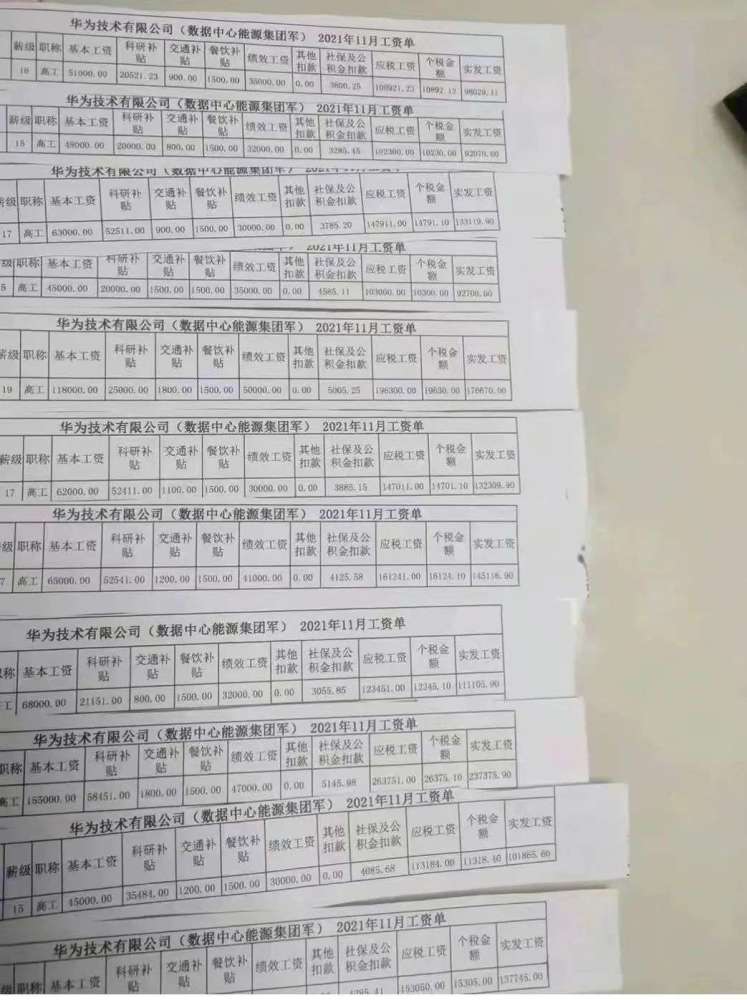 华为技术有限公司（数据中心能源集团军） 2021年11月工资单
薪级 职称 基本工资 科研补贴 交通补贴 餐饮补贴 绩效工资 其他扣款 社保及公积金扣款 应税工资 个税金额 实发工资
16 高工 51000.00 20521.23 900.00 1500.00 35000.00 0.00 10892.12 98029.11
华为技术有限公司（数据中心能源集团军） 2021年11月工资单
薪级 职称 基本工资 科研补贴 交通补贴 餐饮补贴 绩效工资 其他扣款 社保及公积金扣款 应税工资 个税金额 实发工资
15 高工 48000.00 20000.00 800.00 1500.00 32000.00 0.00 3285.45 102300.00 10230.00 92070.00
华为技术有限公司（数据中心能源集团军） 2021年11月工资单
薪级 职称 基本工资 科研补贴 交通补贴 餐饮补贴 绩效工资 其他扣款 社保及公积金扣款 应税工资 个税金额 实发工资
17 高工 63000.00 52511.00 900.00 1500.00 30000.00 0.00 3785.20 147911.00 14791.10 133119.90
2021年11月工资单
级 职称 基本工资 科研补贴 交通补贴 餐饮补贴 绩效工资 其他扣款 社保及公积金扣款 应税工资 个税金额 实发工资
5 高工 45000.00 20000.00 1500.00 1500.00 35000.00 0.00 4585.11 103000.00 10300.00 92700.00
华为技术有限公司（数据中心能源集团军） 2021年11月工资单
薪级 职称 基本工资 科研补贴 交通补贴 餐饮补贴 绩效工资 其他扣款 社保及公积金扣款 应税工资 个税金额 实发工资
19 高工 118000.00 25000.00 1800.00 1500.00 50000.00 0.00 5005.25 196300.00 19630.00 176670.00
华为技术有限公司（数据中心能源集团军） 2021年11月工资单
薪级 职称 基本工资 科研补贴 交通补贴 餐饮补贴 绩效工资 其他扣款 社保及公积金扣款 应税工资 个税金额 实发工资
17 高工 62000.00 52411.00 1100.00 1500.00 30000.00 0.00 3885.15 147011.00 14701.10 132309.90
华为技术有限公司（数据中心能源集团军） 2021年11月工资单
级 职称 基本工资 科研补贴 交通补贴 餐饮补贴 绩效工资 其他扣款 社保及公积金扣款 应税工资 个税金额 实发工资
7 高工 65000.00 52541.00 1200.00 1500.00 41000.00 0.00 4125.58 161241.00 16124.10 145116.90
华为技术有限公司（数据中心能源集团军） 2021年11月工资单
职称 基本工资 科研补贴 交通补贴 餐饮补贴 绩效工资 其他扣款 社保及公积金扣款 应税工资 个税金额 实发工资
工 68000.00 21151.00 800.00 1500.00 32000.00 0.00 3055.85 123451.00 12345.10 111105.90
华为技术有限公司（数据中心能源集团军） 2021年11月工资单
职称 基本工资 科研补贴 交通补贴 餐饮补贴 绩效工资 其他扣款 社保及公积金扣款 应税工资 个税金额 实发工资
高工 155000.00 58451.00 1800.00 1500.00 47000.00 0.00 5145.98 263751.00 26375.10 237375.90
华为技术有限公司（数据中心能源集团军） 2021年11月工资单
薪级 职称 基本工资 科研补贴 交通补贴 餐饮补贴 绩效工资 其他扣款 社保及公积金扣款 应税工资 个税金额 实发工资
15 高工 45000.00 35484.00 1200.00 1500.00 30000.00 0.00 4085.68 113184.00 11318.40 101865.60
华为技术有限公司（数据中心能源集团军） 2021年11月工资单
级 职称 基本工资 科研补贴 交通补贴 餐饮补贴 绩效工资 其他扣款 社保及公积金扣款 应税工资 个税金额 实发工资
153050.00 15305.00 137745.00